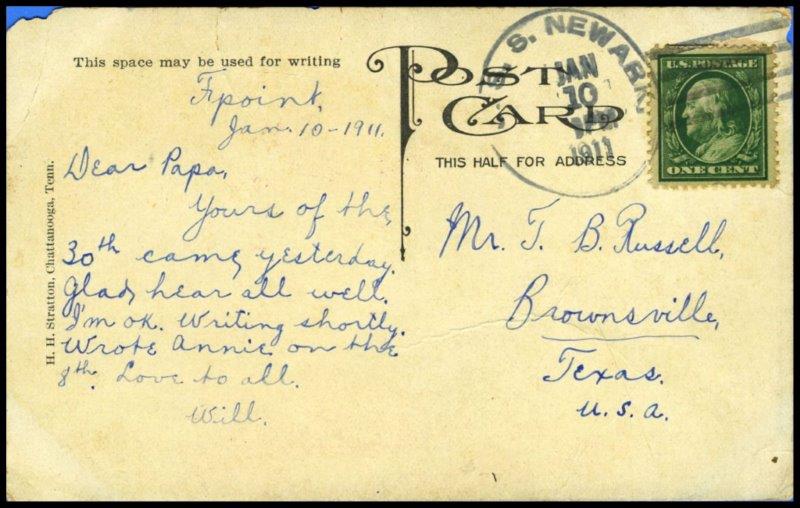 This space may be used for writing
POST CARD
THIS HALF FOR ADDRESS
U. S. S. NEWARK
JAN
10
1911
U.S. POSTAGE
ONE CENT
H. H. Stratton, Chattanooga, Tenn.
Jan. 10-1911.
Dear Papa,
Yours of the
30th came yesterday.
Glad hear all well.
I'm ok. Writing shortly.
Wrote Annie on the
8th. Love to all.
Will.
Mr. T. B. Russell,
Brownsville,
Texas.
U.S.A.